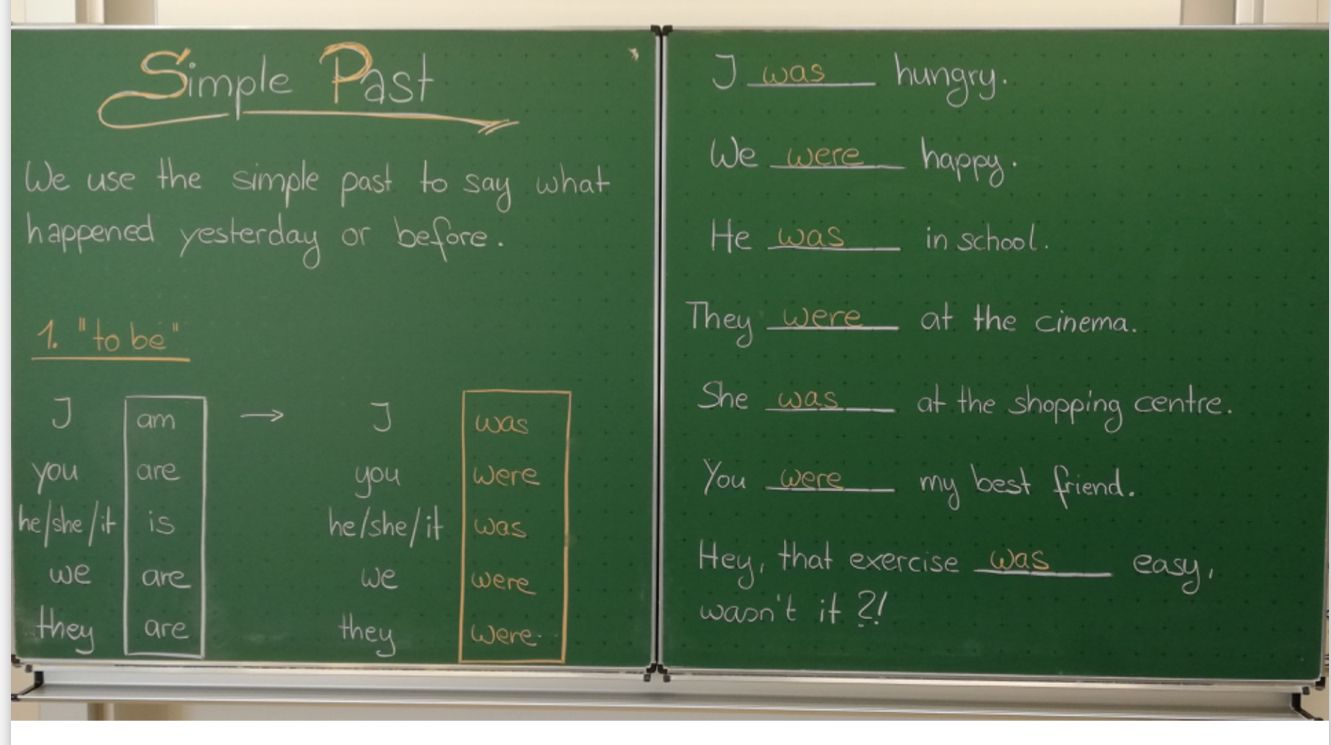 Simple Past
We use the simple past to say what
happened yesterday or before.
1. "to be"
I am → I was
you are you were
he/she/it is he/she/it was
we are we were
they are they were
I was hungry.
We were happy.
He was in school.
They were at the cinema.
She was at the shopping centre.
You were my best friend.
Hey, that exercise was easy,
wasn't it?!